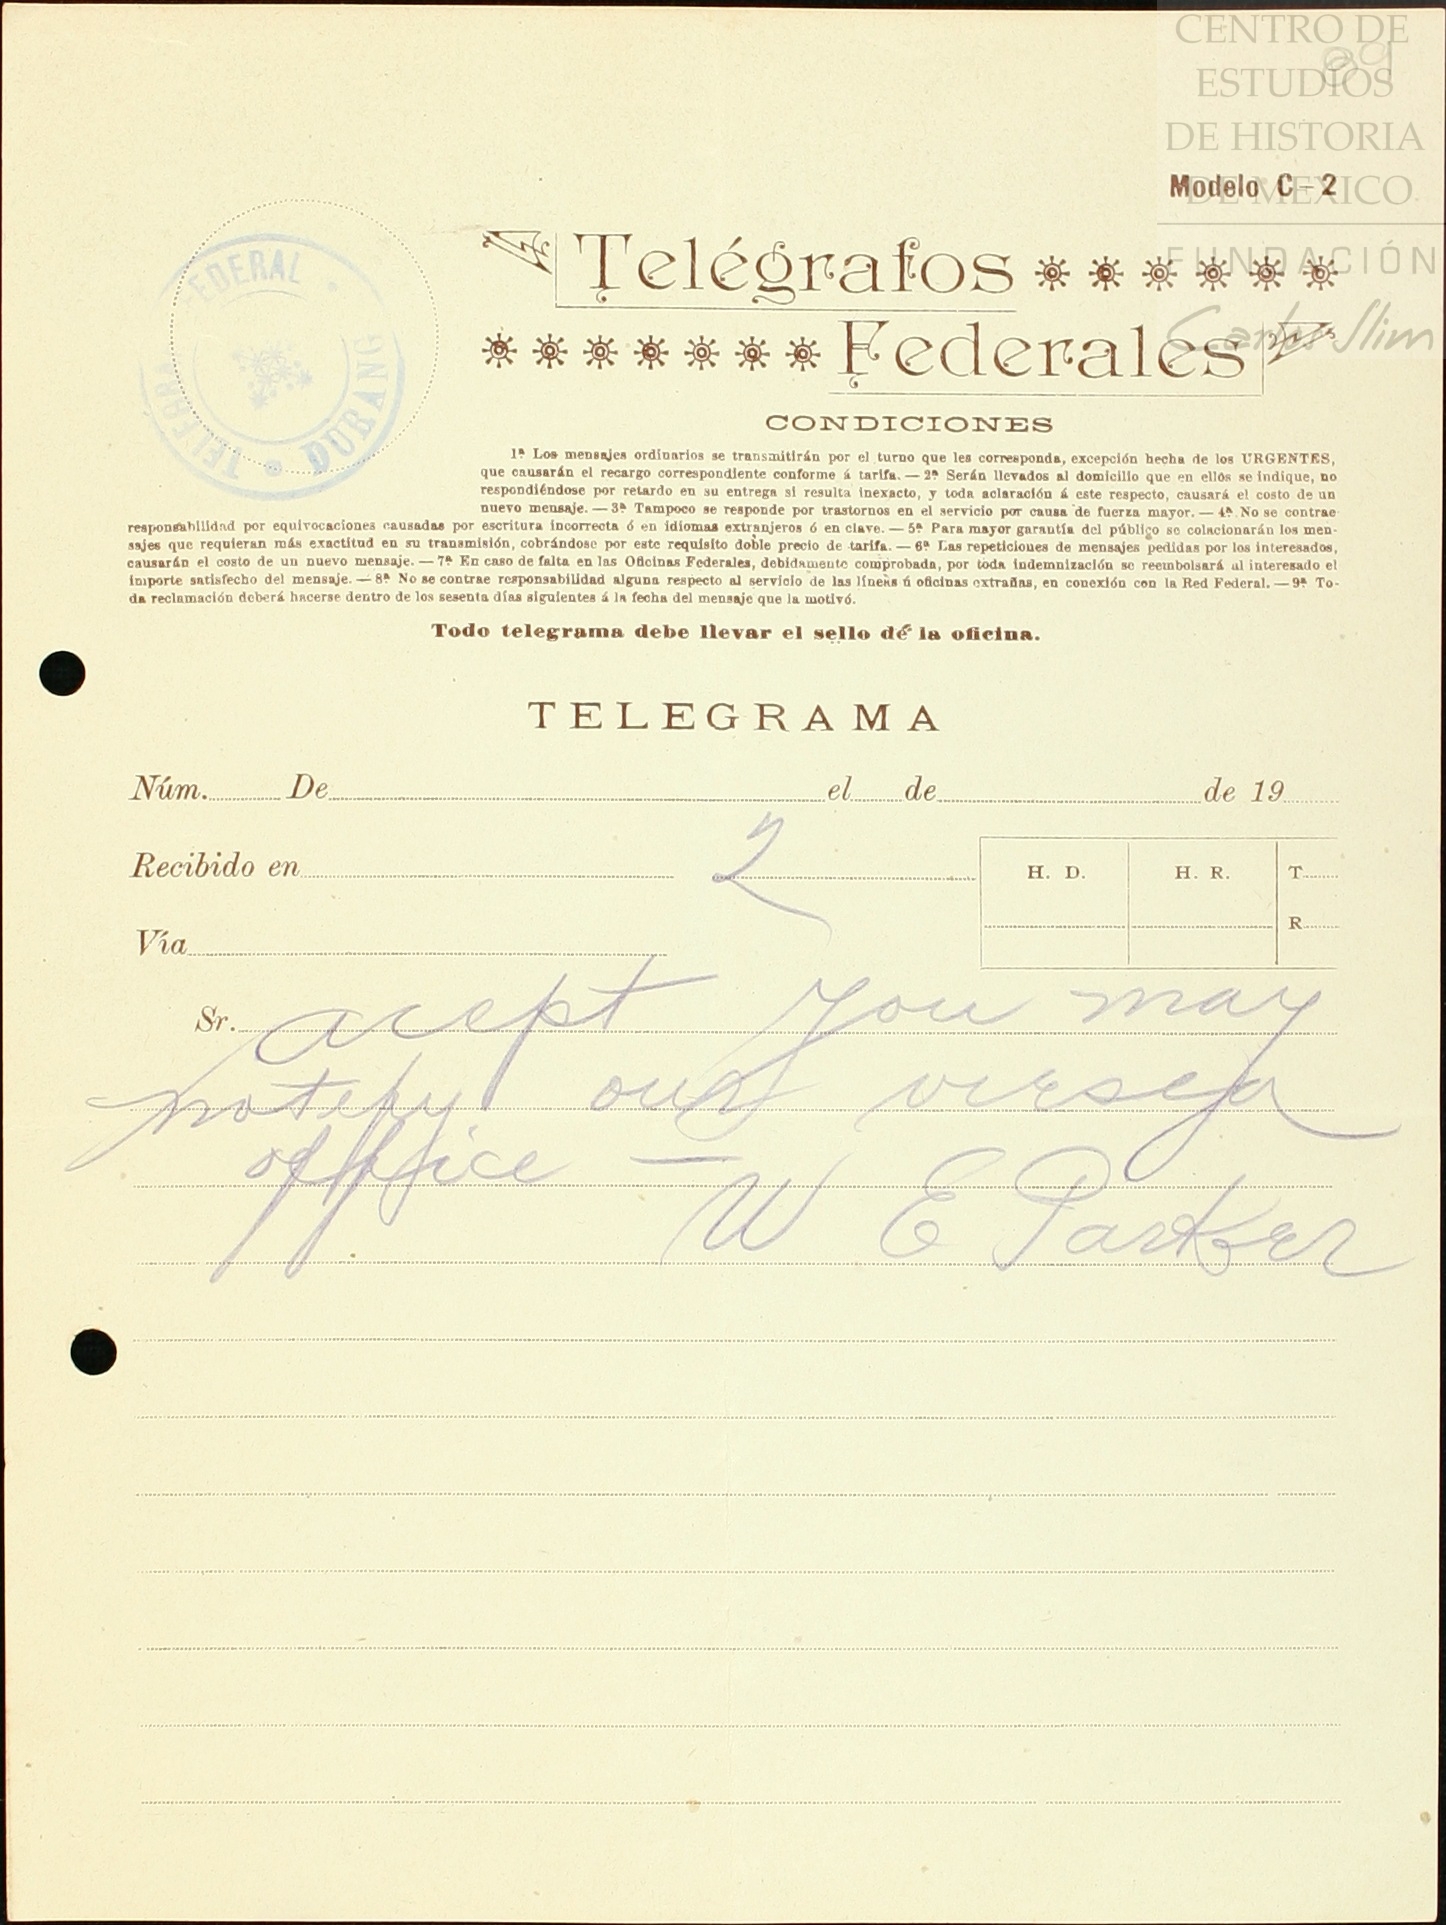 CENTRO DE
ESTUDIOS
DE HISTORIA
DE MEXICO
FUNDACIÓN
Carlos Slim
89
Modelo C-2
TELEGRAFO FEDERAL
DURANGO
Telégrafos
Federales
CONDICIONES
1ª Los mensajes ordinarios se transmitirán por el turno que les corresponda, excepción hecha de los URGENTES,
que causarán el recargo correspondiente conforme á tarifa. — 2ª Serán llevados al domicilio que en ellos se indique, no
respondiéndose por retardo en su entrega si resulta inexacto, y toda aclaración á este respecto, causará el costo de un
nuevo mensaje. — 3ª Tampoco se responde por trastornos en el servicio por causa de fuerza mayor. — 4ª No se contrae
responsabilidad por equivocaciones causadas por escritura incorrecta ó en idiomas extranjeros ó en clave. — 5ª Para mayor garantía del público se colacionarán los men-
sajes que requieran más exactitud en su transmisión, cobrándose por este requisito doble precio de tarifa. — 6ª Las repeticiones de mensajes pedidas por los interesados,
causarán el costo de un nuevo mensaje. — 7ª En caso de falta en las Oficinas Federales, debidamente comprobada, por toda indemnización se reembolsará al interesado el
importe satisfecho del mensaje. — 8ª No se contrae responsabilidad alguna respecto al servicio de las líneas ú oficinas extrañas, en conexión con la Red Federal. — 9ª To-
da reclamación deberá hacerse dentro de los sesenta días siguientes á la fecha del mensaje que la motivó.
Todo telegrama debe llevar el sello de la oficina.
TELEGRAMA
Núm. De el de de 19
Recibido en 2 H. D. H. R. T.
R.
Vía
Sr. acept you may
notefy our
office — W E Parker